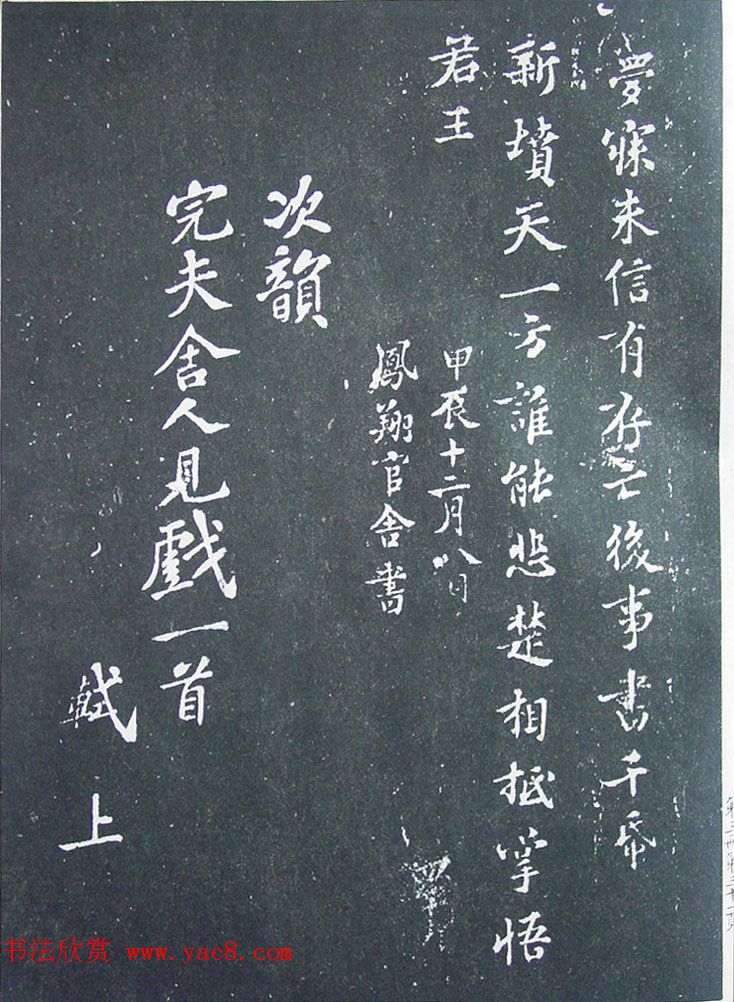 夢寐未信有存亡後事書千帋
新墳天一方誰能悲楚相抵掌悟
君王
甲辰十二月八日
鳳翔官舍書
次韻
完夫舍人見戲一首
軾上
书法欣赏 www.yac8.com